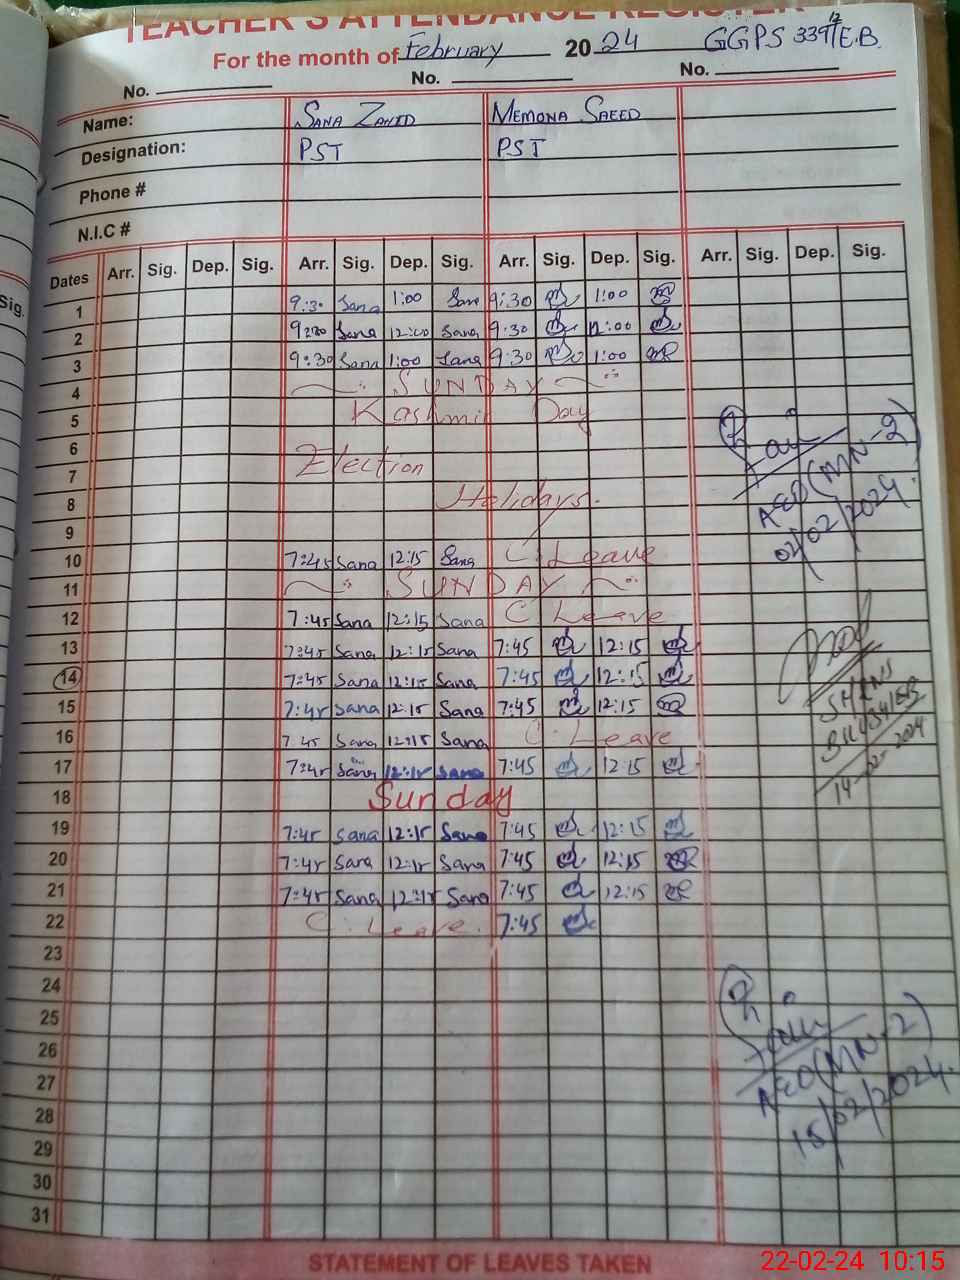 TEACHER'S ATTENDANCE REGISTER
For the month of February 2024 GGPS 339/E.B. 12
No. No. No.
Name: SANA ZAHID MEMONA SAEED
Designation: PST PST
Phone #
N.I.C #
Dates Arr. Sig. Dep. Sig. Arr. Sig. Dep. Sig. Arr. Sig. Dep. Sig. Arr. Sig. Dep. Sig.
Sig.
1 9:30 Sana 1:00 Sana 9:30 1:00
2 9:30 Sana 12:00 Sana 9:30 12:00
3 9:30 Sana 1:00 Sana 9:30 1:00
4 SUNDAY
5 Kashmir Day
6
7 Election
8 Holidays.
9
10 7:45 Sana 12:15 Sana C. Leave
11 SUNDAY
12 7:45 Sana 12:15 Sana C Leave
13 7:45 Sana 12:15 Sana 7:45 12:15
14 7:45 Sana 12:15 Sana 7:45 12:15
15 7:45 Sana 12:15 Sana 7:45 12:15
16 7:45 Sana 12:15 Sana C. Leave
17 7:45 Sana 12:15 Sana 7:45 12:15
18 Sunday
19 7:45 Sana 12:15 Sana 7:45 12:15
20 7:45 Sana 12:15 Sana 7:45 12:15
21 7:45 Sana 12:15 Sana 7:45 12:15
22 C. Leave. 7:45
23
24
25
26
27
28
29
30
31
AEO(MN-2)
02/02/2024.
14-02-2024
AEO(MN-2)
15/02/2024.
STATEMENT OF LEAVES TAKEN
22-02-24 10:15